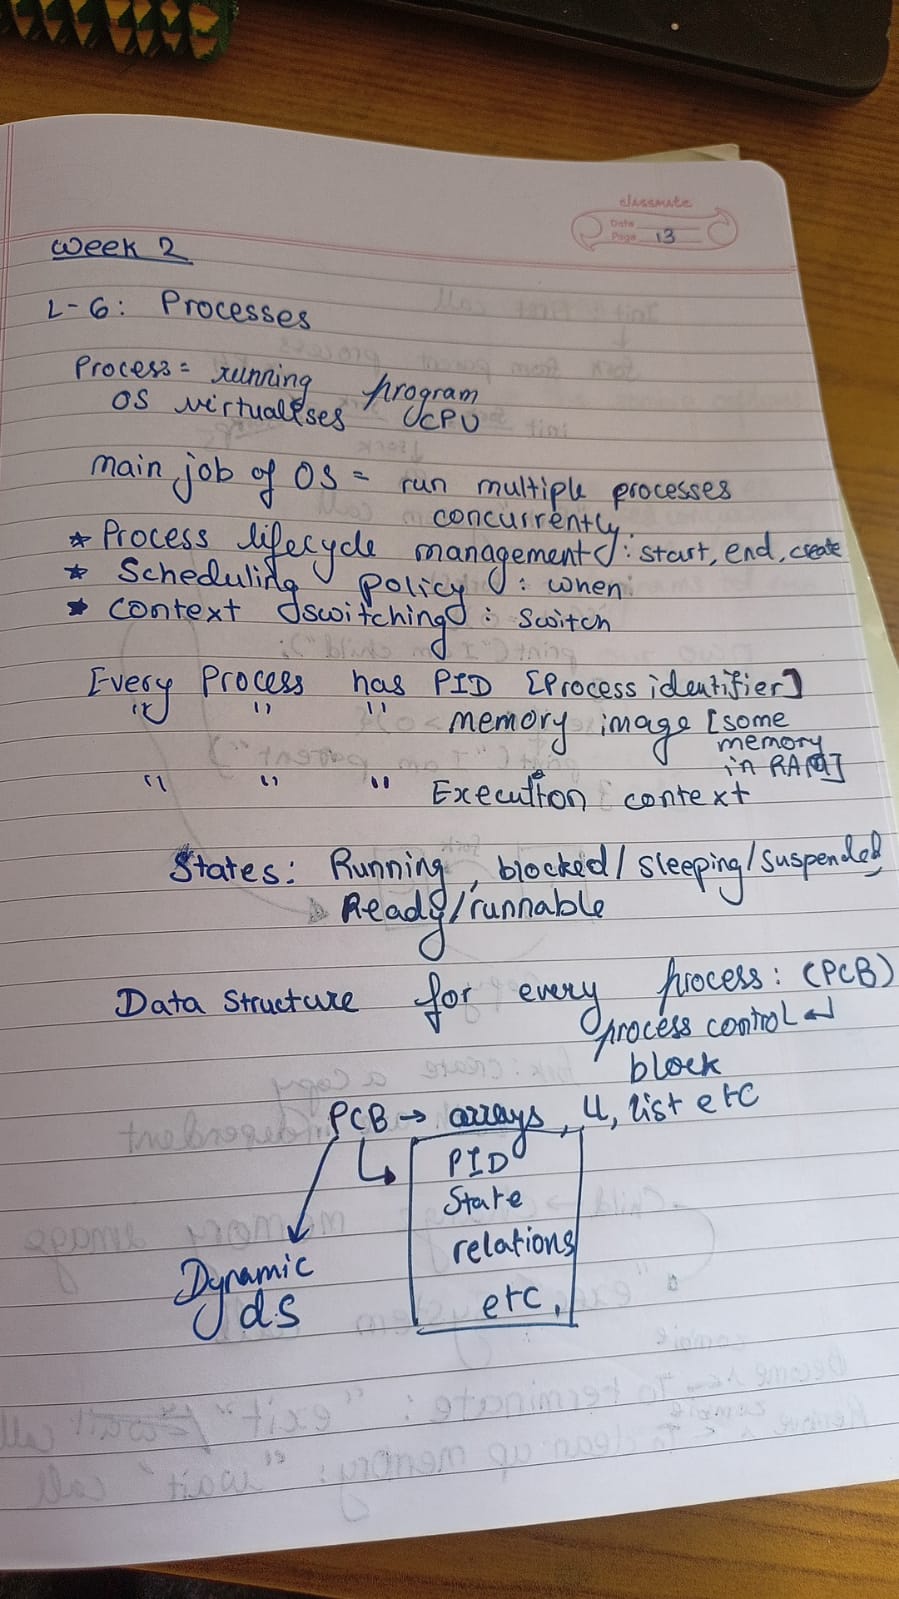 classmate
Date
Page 13
Week 2
L-6: Processes
Process = running program
OS virtualises CPU
main job of OS = run multiple processes
concurrently
* Process lifecycle management : start, end, create
* Scheduling policy : when
* Context switching : switch
Every Process has PID [Process identifier]
" " " memory image [some
memory
in RAM]
" " " Execution context
States: Running, blocked/sleeping/suspended
Ready/runnable
Data Structure for every process: (PCB)
process control
block
PCB → arrays, LL, list etc
PID
State
relations
etc.
Dynamic
ds